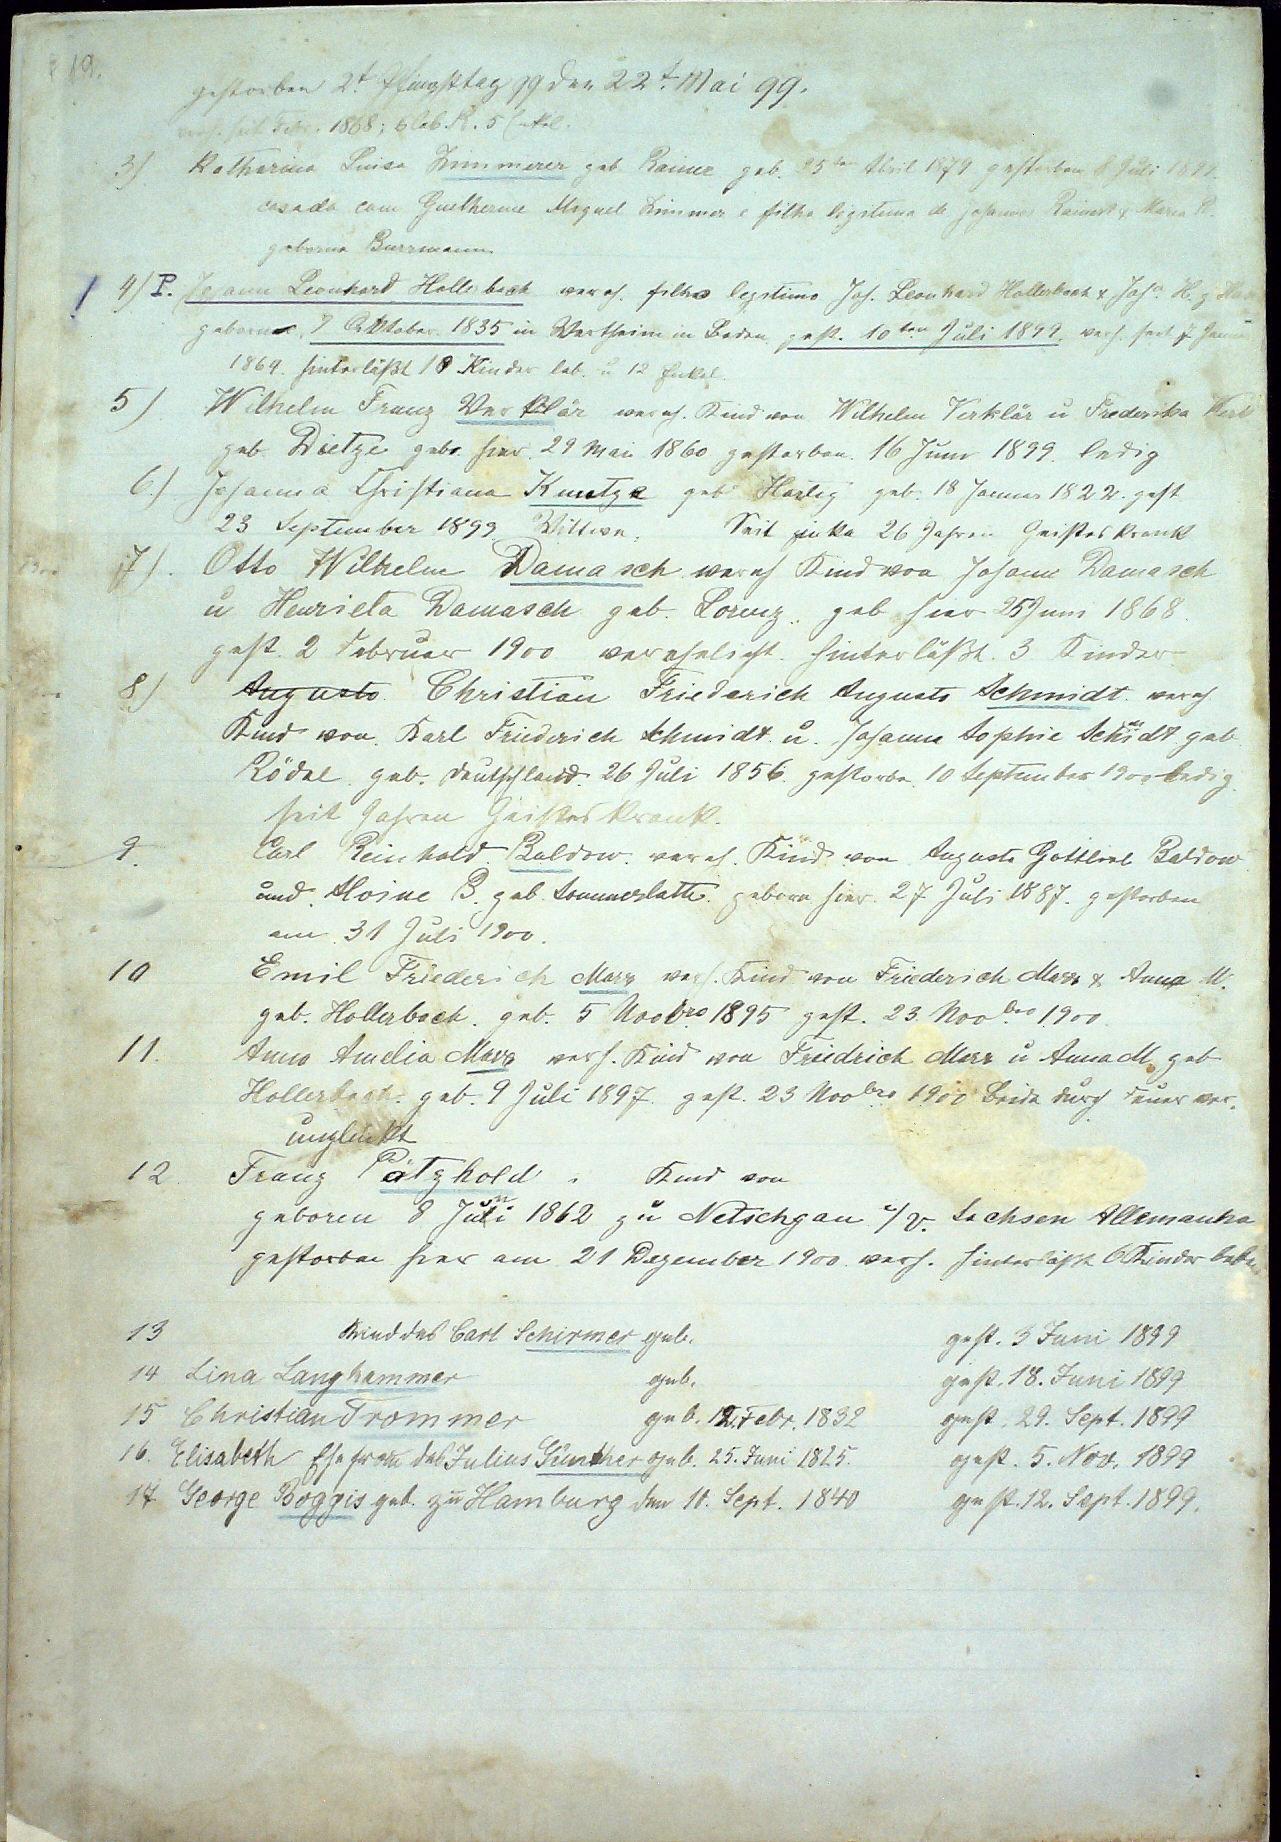 19.
gestorben 2t Pfingsttag den 22t. Mai 99.
verh. seit Febr. 1868; 6 leb. K. 5 Enkel.
3) Katharina Luisa Zimmerer geb. Rainer geb. 25ten April 1879 gestorben 8 Juli 1899
casada com Guilherme Miguel Zimmer e filha legitima de Johannes Rainert & Maria R.
geborne Burrmann.
4) P. Johann Leonhard Hollerbach vereh. filho legitimo Joh. Leonhard Hollerbach & Joha. H. g.
geboren, 7 Oktober 1835 in Wertheim in Baden gest. 10ten Juli 1899. verh. seit 7
1869. hinterläßt 10 Kinder leb. u 12 Enkel.
5) Wilhelm Franz Verklär vereh. Kind von Wilhelm Verklär u Frederika Verk
geb. Dietze geb. hier 29 Mai 1860 gestorben. 16 Juni 1899. ledig
6.) Johanna Christiana Kuntze geb Harlig geb. 18 Januar 1822. gest
23 September 1899 Wittwe. Seit zirka 26 Jahren Geisteskrank
1900 7). Otto Wilhelm Damasch vereh Kind von Johann Damasch
u Henrieta Damasch geb. Lorenz. geb hier 25 Juni 1868.
gest. 2 Februar 1900 verehelicht. hinterläßt. 3 Kinder
8) Augusto Christian Friederich Augusto Schmidt vereh
Kind von Karl Friederich Schmidt u. Johanna Sophie Schmidt geb
Rödel geb. Deutschland 26 Juli 1856. gestorbe. 10 September 1900 ledig.
seit Jahren Geisteskrank.
9. Carl Reinhold Baldow. vereh. Kind von Augusto Gottlieb Baldow
und Aloine B. geb. Sommerlatte. geboren hier 27 Juli 1887. gestorben
am 31 Juli 1900.
10 Emil Friederich Marx verh. Kind von Friederich Marx & Anna M.
geb. Hollerbach. geb. 5 Noobro 1895 gest. 23. Noobro 1900.
11. Anna Amelia Marx verh. Kind von Friedrich Marx u Anna M. geb
Hollerbach. geb. 9 Juli 1897. gest. 23 Noobro 1900 Beide durch Feuer ver.
unglückt
12. Franz Pätzhold. Kind von
geboren 8 Juli 1862 zu Netschgau i/V. Sachsen Allemanha
gestorben hier am 21 Dezember 1900. verh. hinterläßt 6 Kinder
13 Kind des Carl Schirmer geb. gest. 3 Juni 1899
14 Lina Langhammer geb. gest. 18. Juni 1899
15 Christian Trommer geb. 12. Febr. 1832 gest. 29. Sept. 1899
16. Elisabeth Ehefrau des Julius Günther geb. 25. Juni 1825. gest. 5. Nov. 1899
17 George Boggis geb. zu Hamburg den 10. Sept. 1840 gest. 12. Sept. 1899.